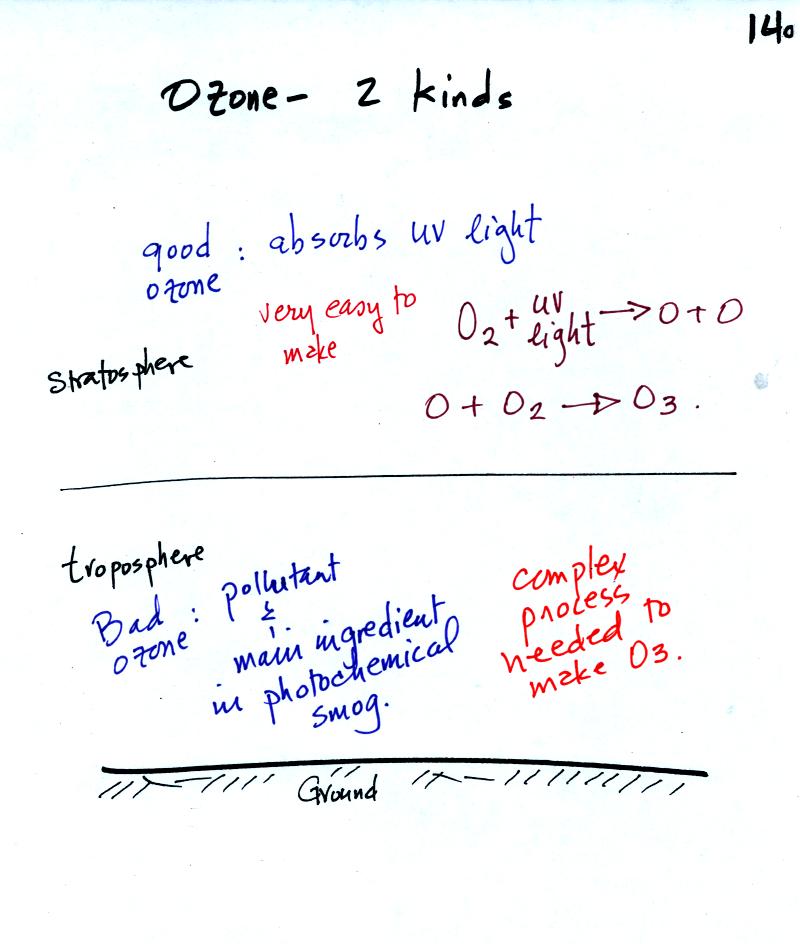 140
Ozone - 2 kinds
good : absorbs uv light
ozone
very easy to
make
O2 + uv light → O + O
stratosphere
O + O2 → O3 .
troposphere
Bad : pollutant
ozone
&
main ingredient
in photochemical
smog.
complex
process
needed to
make O3.
Ground